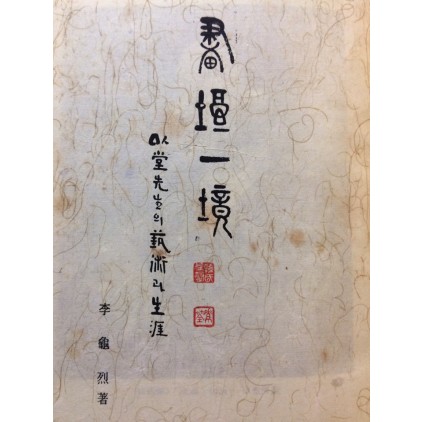 畵壇一境
以堂先生의藝術과生涯
李龜烈著